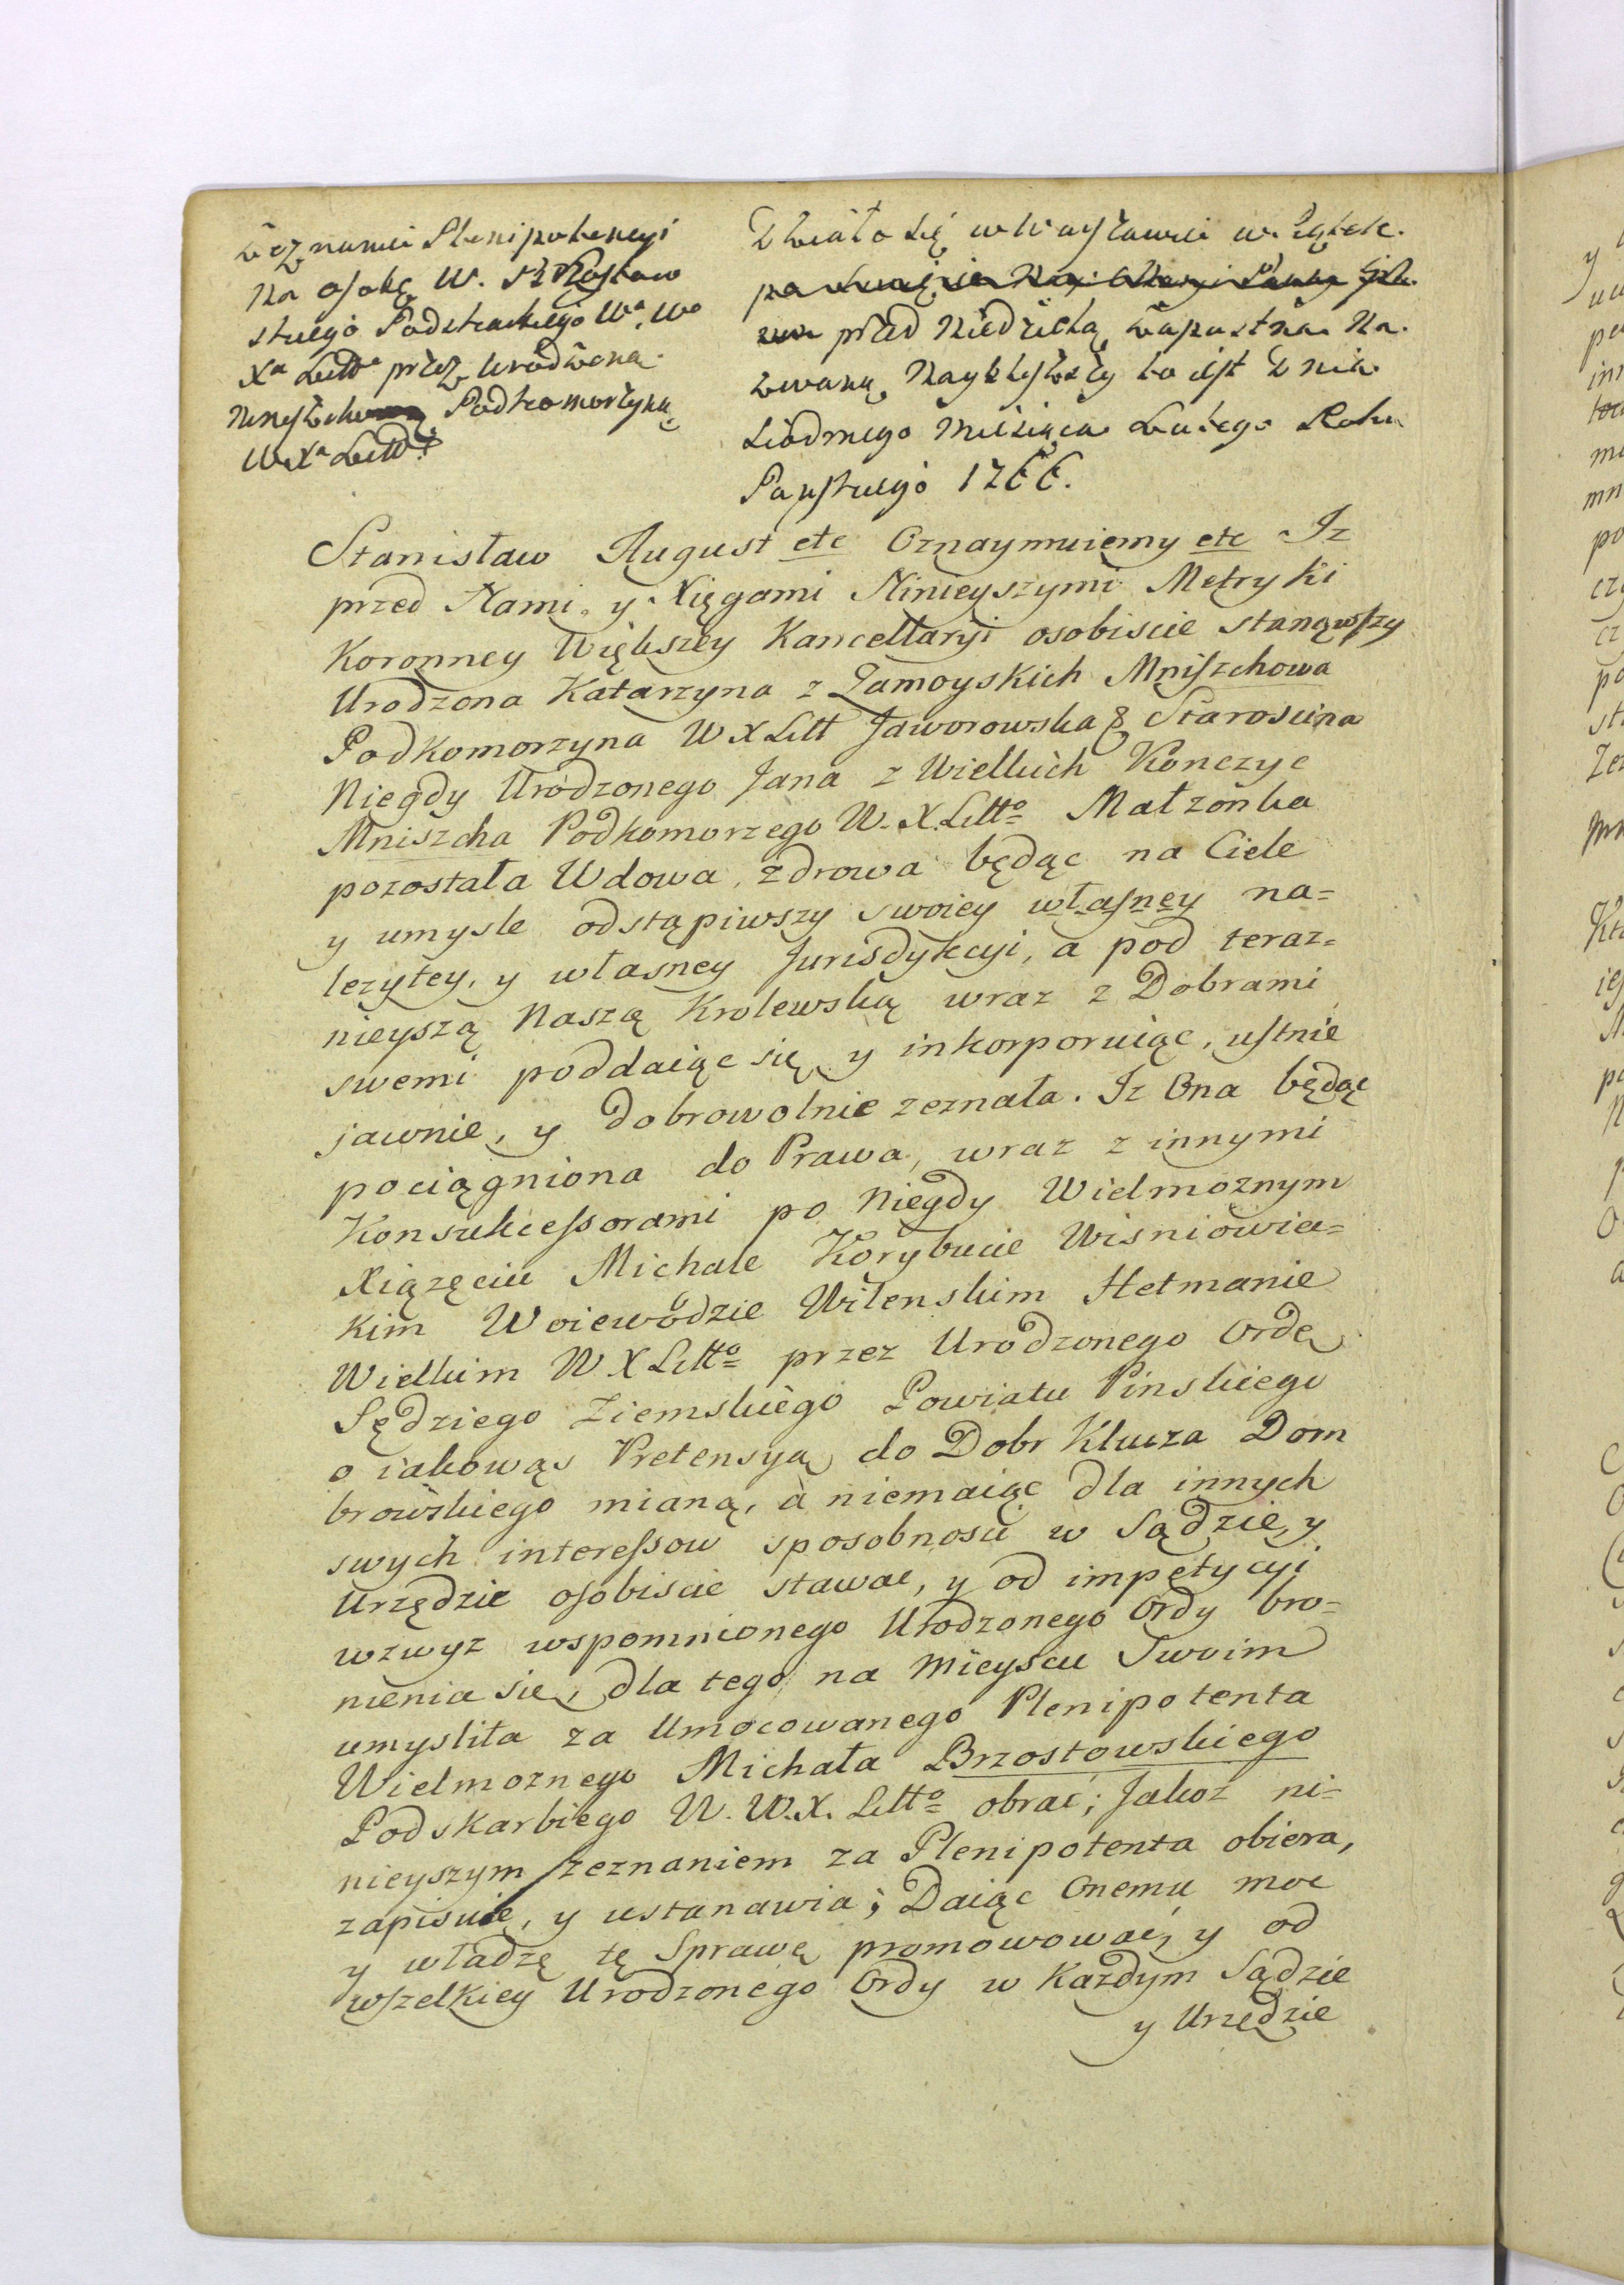 Zeznanie Plenipotencyi
na osobę W. Brzostow
skiego Podskarbiego Wo. Wo
Xa Litto przez Urodzoną
Mniszchową Podkomorzynę
W. Xa Litto
Działo się w Warszawie w Piątek
przed Niedzielą Zapustną na
zwaną naybliższy to iest Dnia
siódmego Miesiąca Lutego Roku
Pańskiego 1766.
Stanisław August etc Oznaymuiemy etc Iz
przed Nami y Xięgami Ninieyszymi Metryki
Koronney Większey Kancellaryi osobiscie stanąwszy
Urodzona Katarzyna z Zamoyskich Mniszchowa
Podkomorzyna W X Litt Jaworowska & Staroscina
Niegdy Urodzonego Jana z Wielkich Konczyc
Mniszcha Podkomorzego W. X. Litto Małzonka
pozostała Wdowa, zdrowa będąc na Ciele
y umysle odstąpiwszy swoiey własney na=
lezytey, y własney Jurisdykcyi, a pod teraz=
nieyszą Naszą Krolewską wraz z Dobrami
swemi poddaiąc się y inkorporuiąc, ustnie
jawnie, y dobrowolnie zeznała. Iz Ona będąc
pociągniona do Prawa, wraz z innymi
Konsukcessorami po Niegdy Wielmoznym
Xiązęciu Michale Korybucie Wisniowiec=
kim Woiewodzie Wilenskim Hetmanie
Wielkim W X Litto przez Urodzonego Ordę
Sędziego Ziemskiego Powiatu Pinskiego
o iakowąs Pretensyą do Dobr Klucza Dom
browskiego mianą, a niemaiąc dla innych
swych interessow sposobnosci w Sądzie, y
Urzędzie osobiscie stawac, y od impetycyi
wzwyz wspomnionego Urodzonego Ordy bro=
nienia się, dla tego na Mieyscu Swoim
umysliła za Umocowanego Plenipotenta
Wielmoznego Michała Brzostowskiego
Podskarbiego W. W. X. Litto obrać; Jakoz ni=
nieyszym zeznaniem za Plenipotenta obiera,
zapisuie, y ustanawia; Daiąc Onemu moc
y władzę tę Sprawę promowować, y od
wszelkiey Urodzonego Ordy w Kazdym Sądzie
y Urzędzie